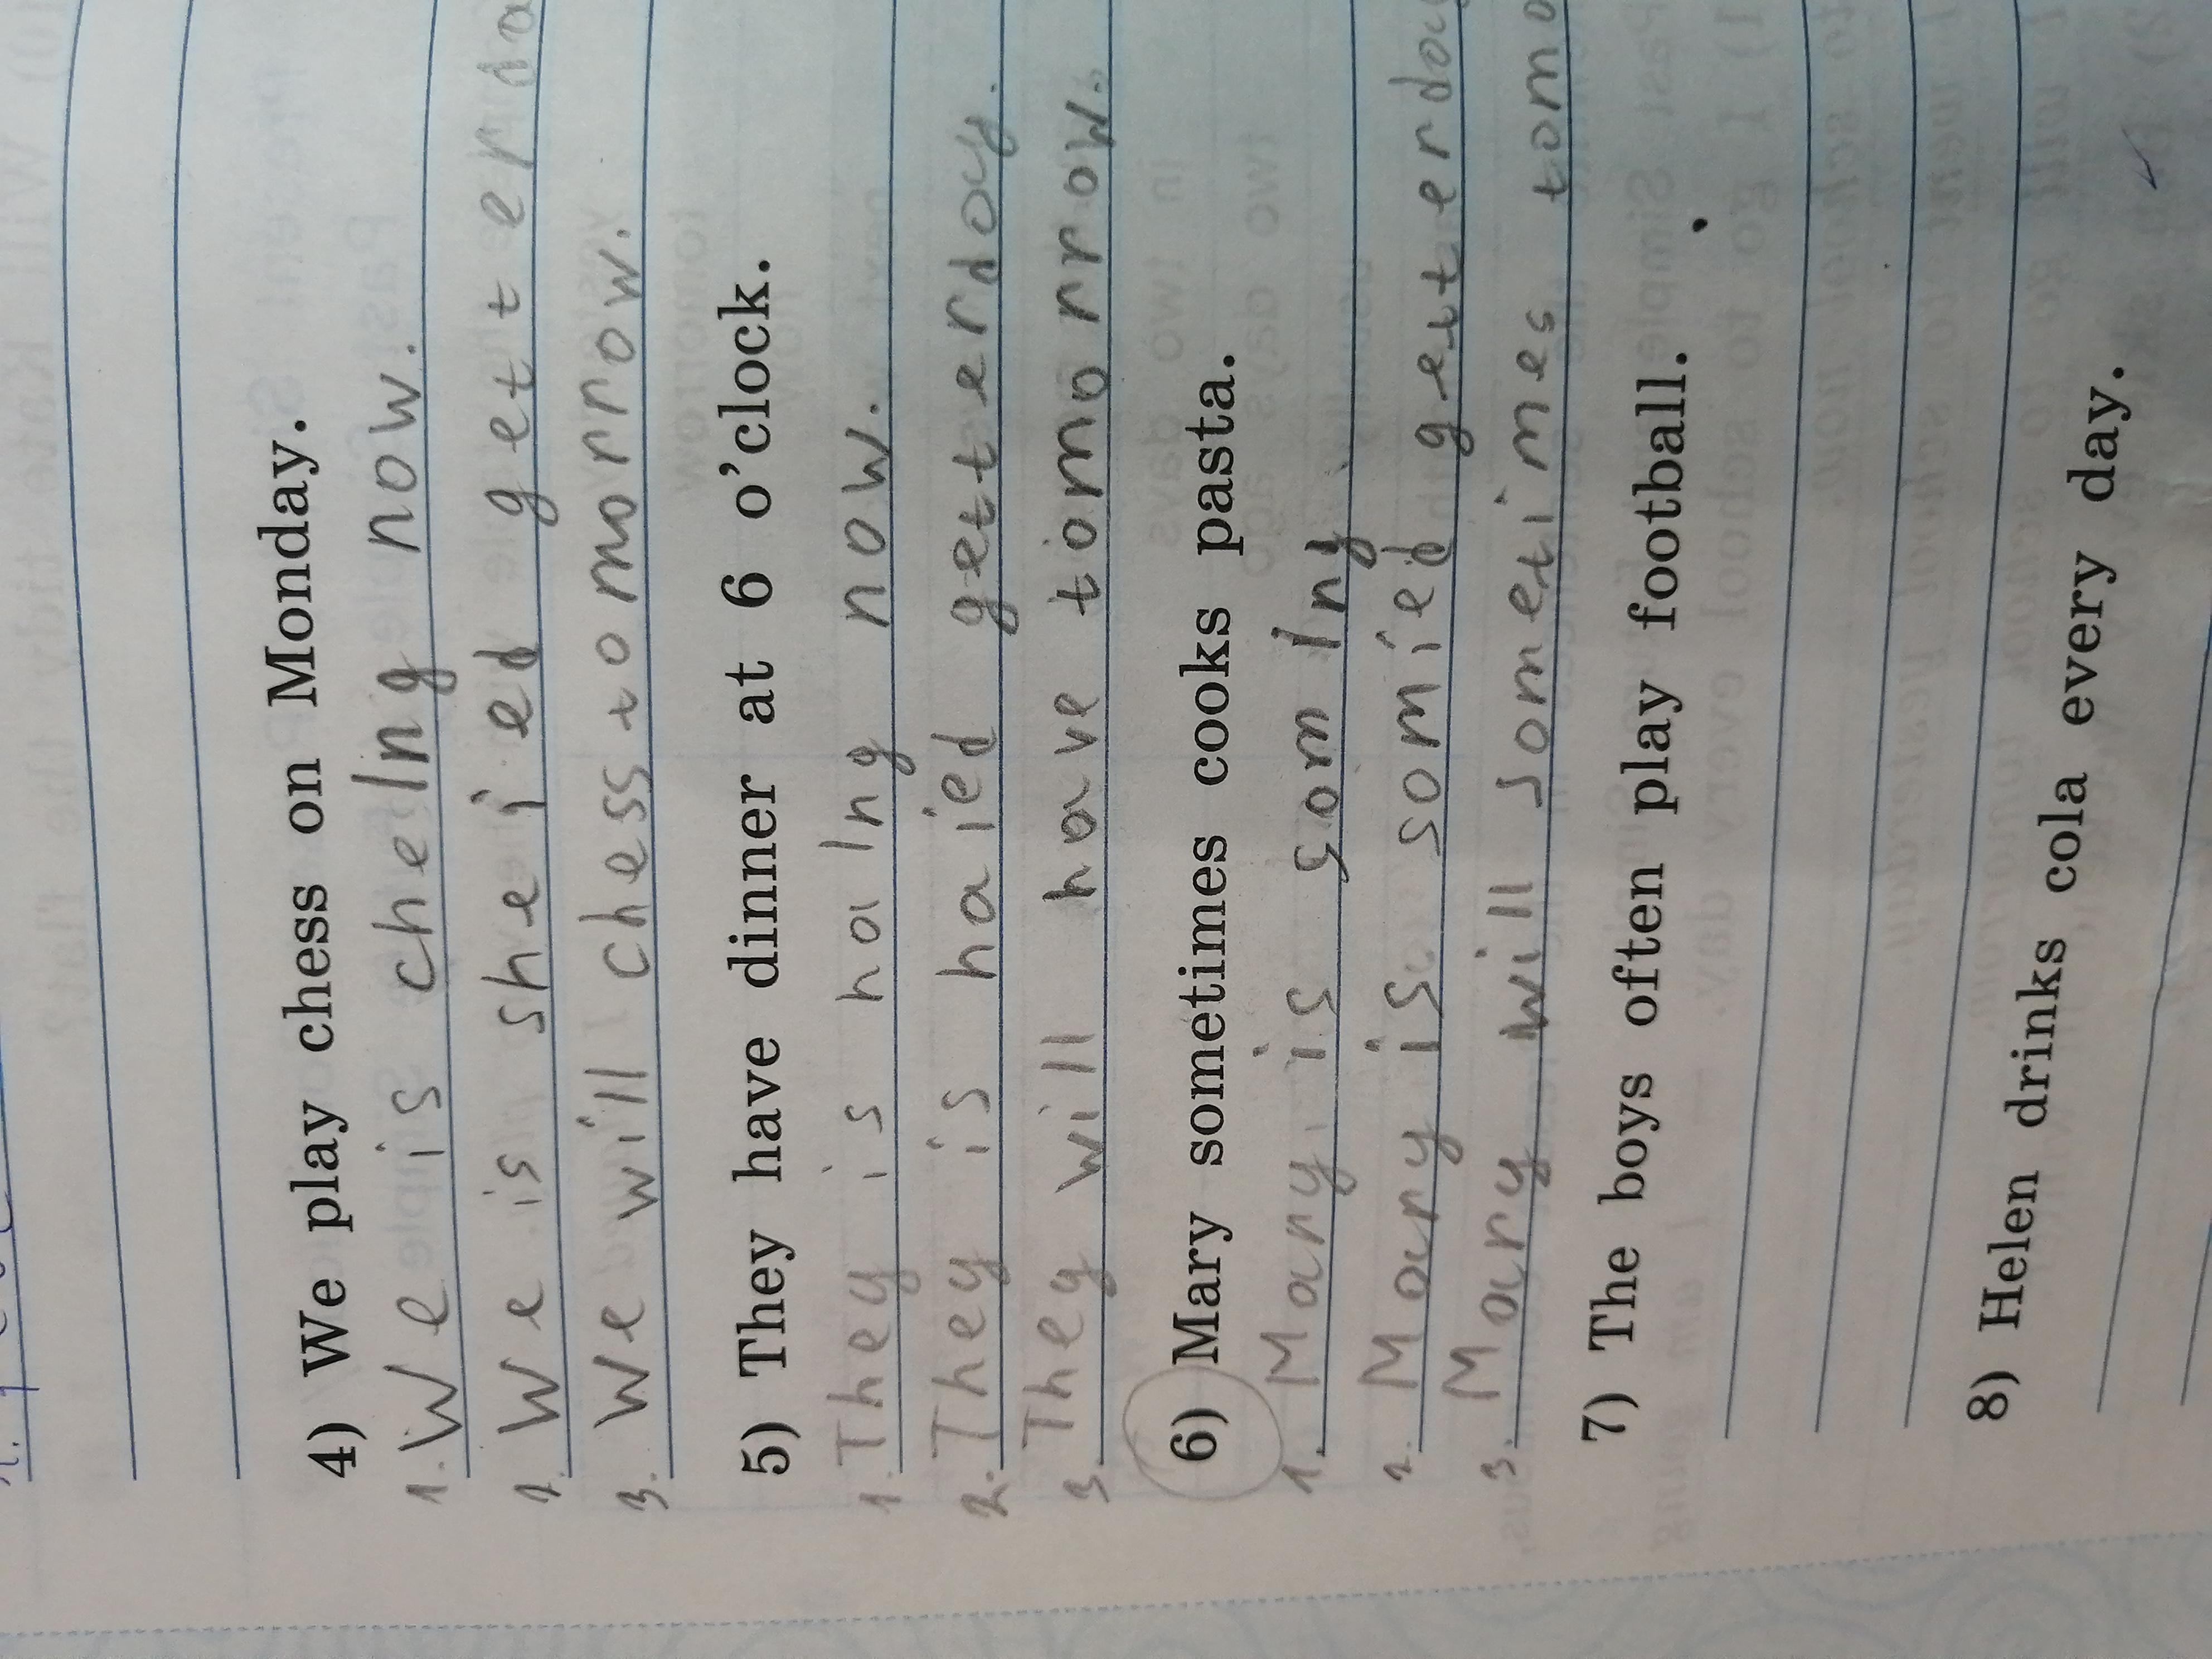 4) We play chess on Monday.
1. We is cheIng now.
2. We is shejed getterda
3. We will chess tomorrow.
5) They have dinner at 6 o'clock.
1. They is haIng now.
2. They is haied getterday.
3. They will have tomorrow.
6) Mary sometimes cooks pasta.
1. Mary is somIng
2. Mary is somied getterday
3. Mary will sometimes tomo
7) The boys often play football.
8) Helen drinks cola every day.